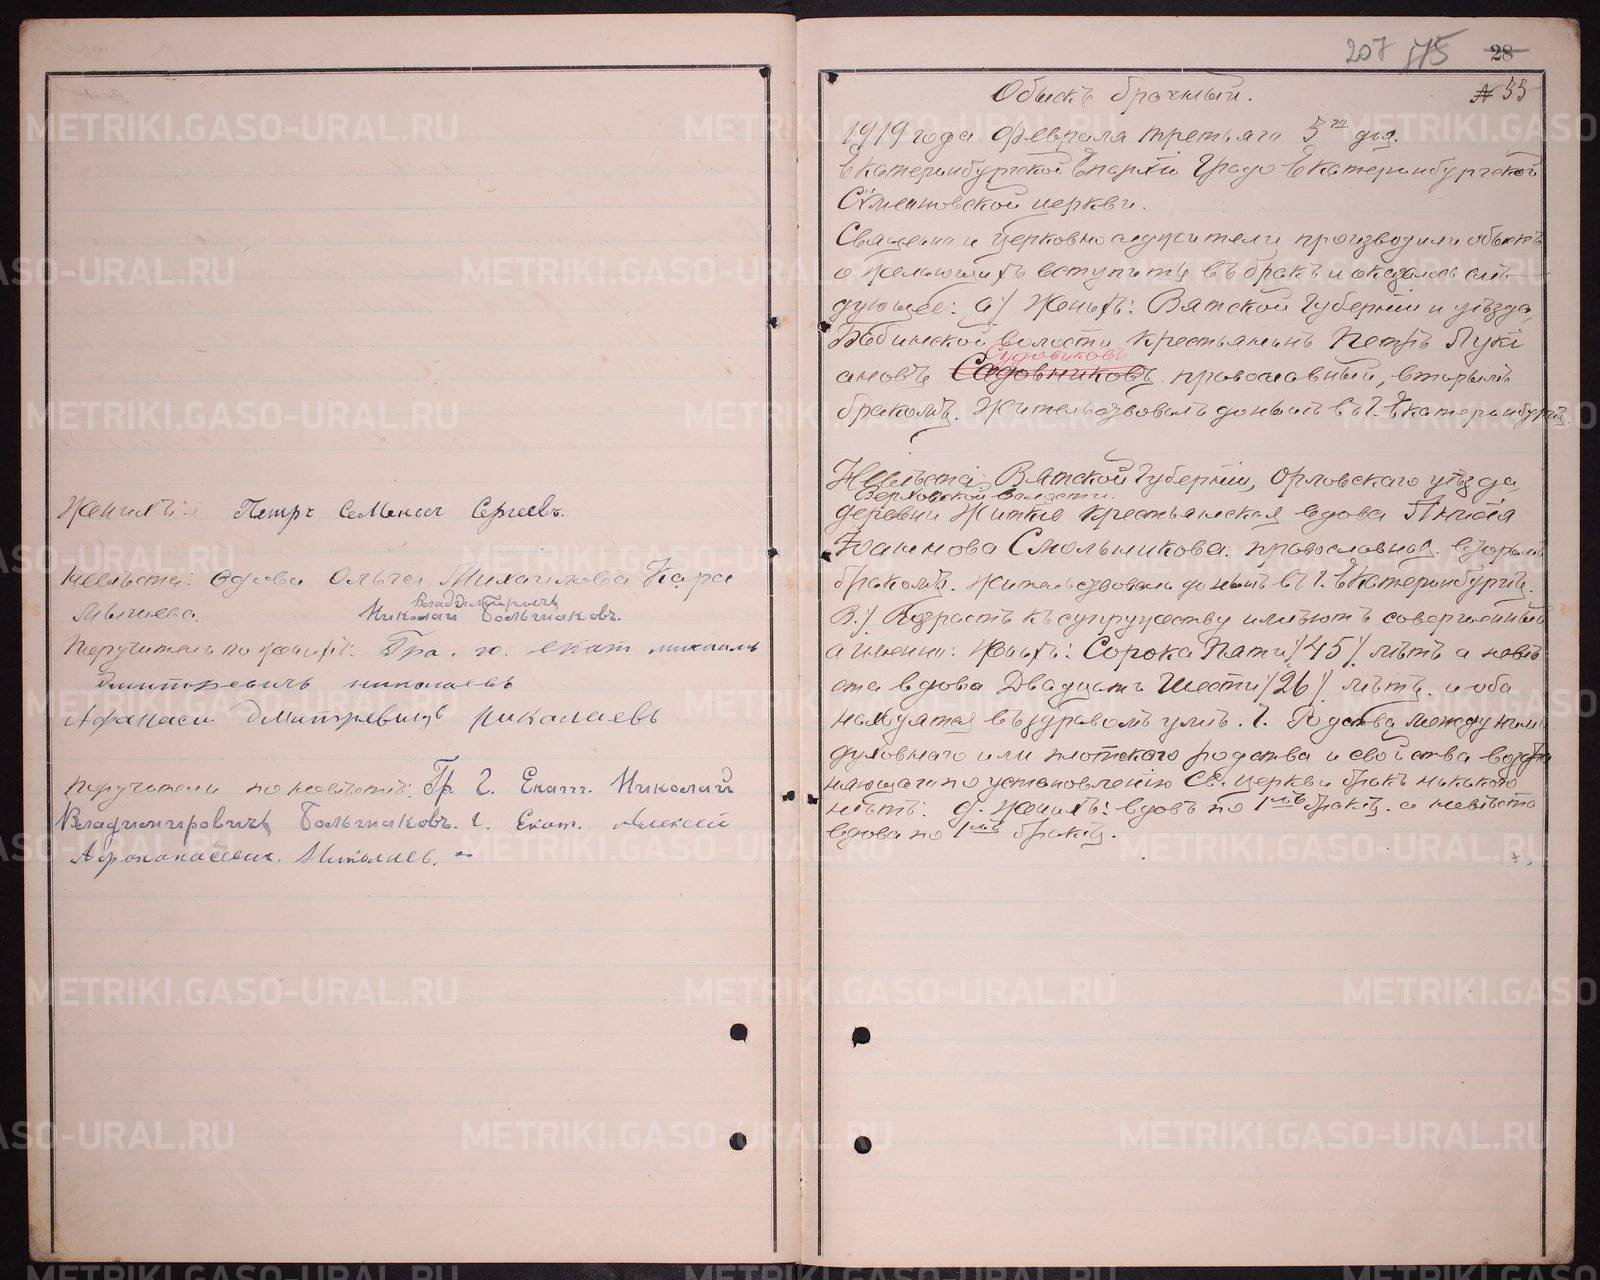 Женихъ: Петръ Семеновъ Сергеевъ.
Невѣста: вдова Ольга Михаилова Кара
мышева.
Владимировичъ
Николаи Большаковъ.
Поручители по женихѣ: Гра. го. екат михаилъ
дмитревичъ николаевъ
Афанаси Дмитревичъ Николаевъ
поручители по невѣстѣ: Гр. Г. Екат. Николай
Владимировичъ Большаковъ. г. Екат. Алексей
207 175 28
Обыскъ брачный. № 33
1919 года февраля третьяго 3 дня.
Екатеринбургской Епархіи Градо Екатеринбургской
Симеоновской церкви.
Священно и церковнослужители производили обыскъ
о желающихъ вступить въ бракъ и оказалось слѣ-
дующее: а) Женихъ: Вятской Губерніи и уѣзда,
Бобинской волости крестьянинъ Петръ Лукі
Судовиковъ
ановъ Садовниковъ православный, вторымъ
бракомъ. Жительствовалъ донынѣ въ г. Екатеринбургѣ.
Невѣста: Вятской Губерніи, Орловскаго уѣзда
Верховской волости.
деревни крестьянская вдова
Іоаннова Смольникова. православная. вторымъ
бракомъ. жительствовала донынѣ въ г. Екатеринбургѣ.
В.) Возрастъ къ супружеству имѣютъ совершенный
а именно: Женихъ: Сорока Пати /45/ лѣтъ а невѣ
ста вдова Двадцать Шести /26/ лѣтъ. и оба
находятся въ здравомъ умѣ. Г. Родства между ними
духовнаго или плотскаго родства и свойства возбра
няющаго по установленію Св. церкви бракъ никакого
нѣтъ: д. Женихъ: вдовъ по 1мъ бракѣ. а невѣста
вдова по 1мъ бракѣ.
METRIKI.GASO-URAL.RU